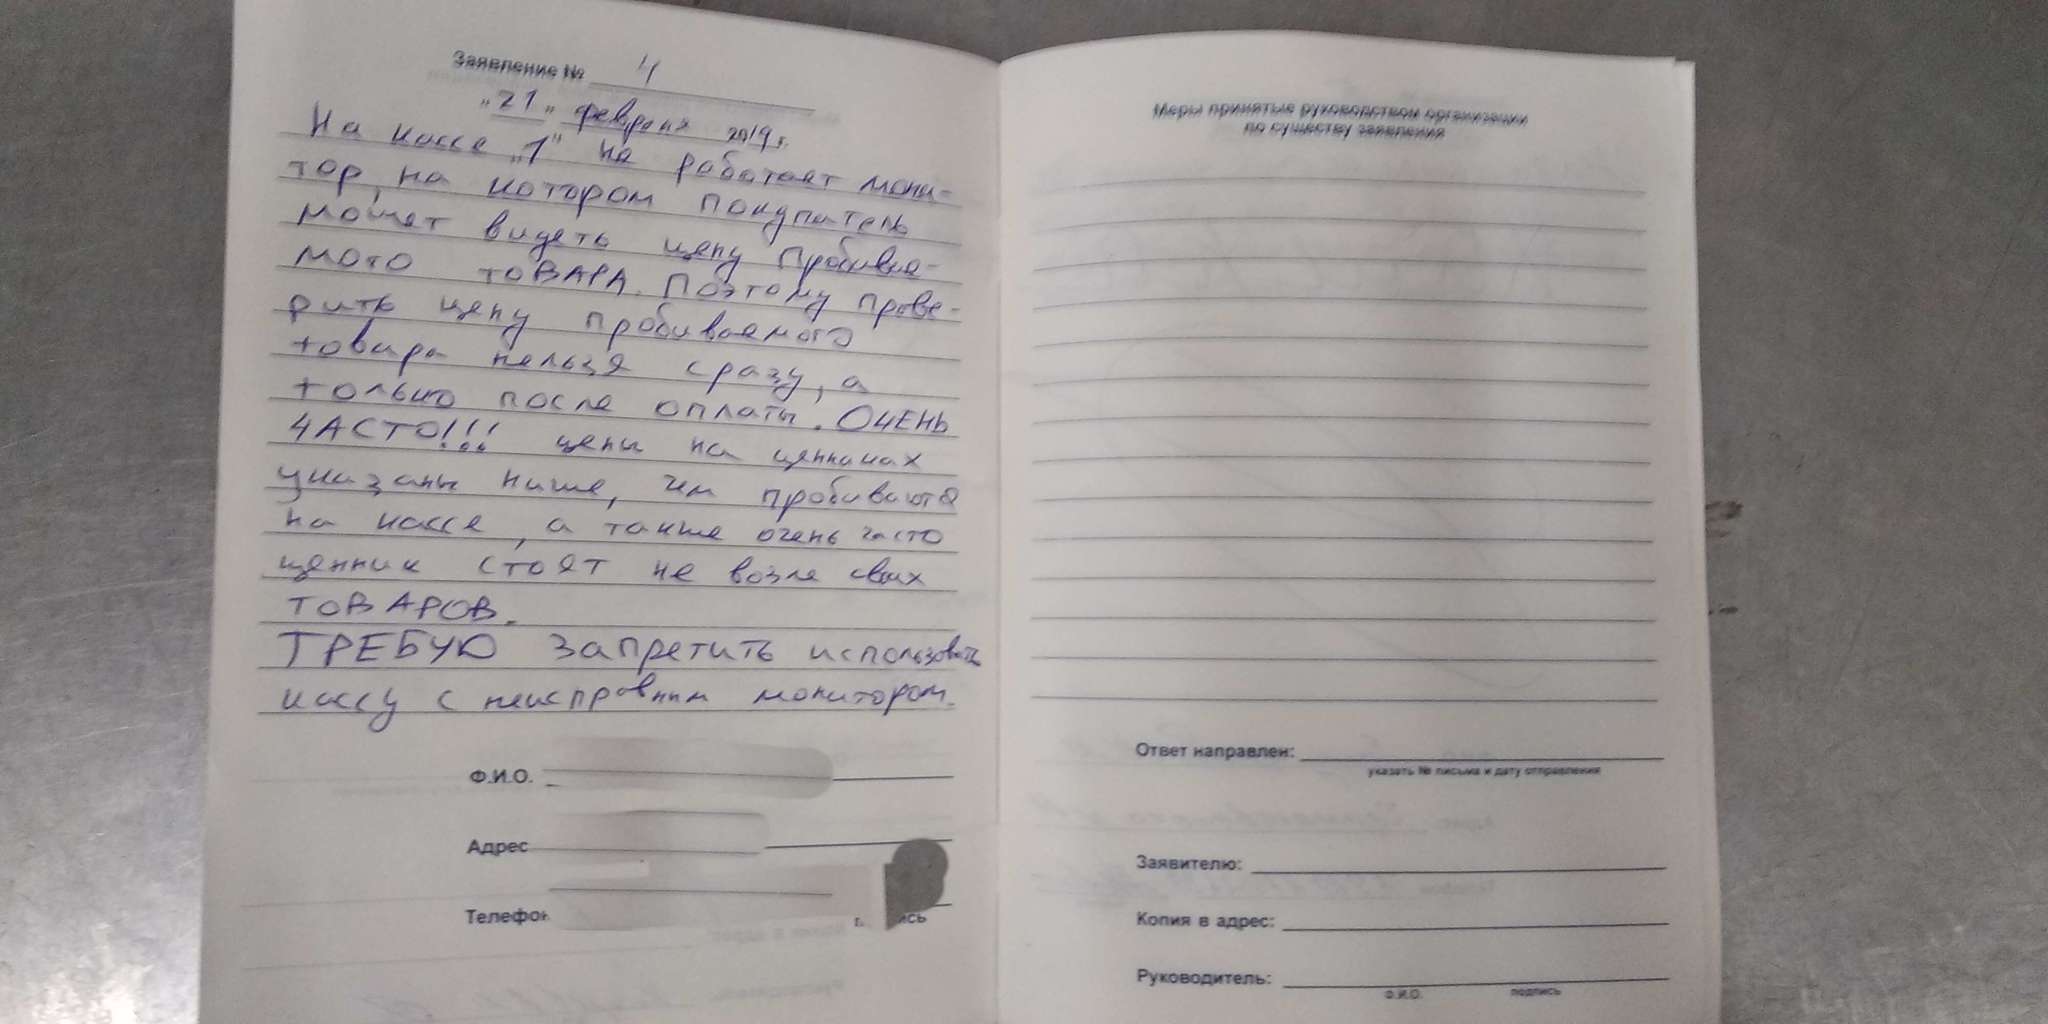 Заявление № 4
„21„ февраля 2019 г.
На кассе „1" не работает мони-
тор, на котором покупатель
может видеть цену Пробивае-
мого ТОВАРА. Поэтому прове-
рить цену пробиваемого
товара нельзя сразу, а
только после оплаты. ОЧЕНЬ
ЧАСТО!!! цены на ценниках
указаны ниже, чем пробиваются
на кассе, а также очень часто
ценник стоят не возле своих
ТОВАРОВ.
ТРЕБУЮ запретить использовать
кассу с неисправным монитором.
Ф.И.О.
Адрес
Телефон
Меры принятые руководством организации
по существу заявления
Ответ направлен:
указать № письма и дату отправления
Заявителю:
Копия в адрес:
Руководитель:
Ф.И.О. подпись